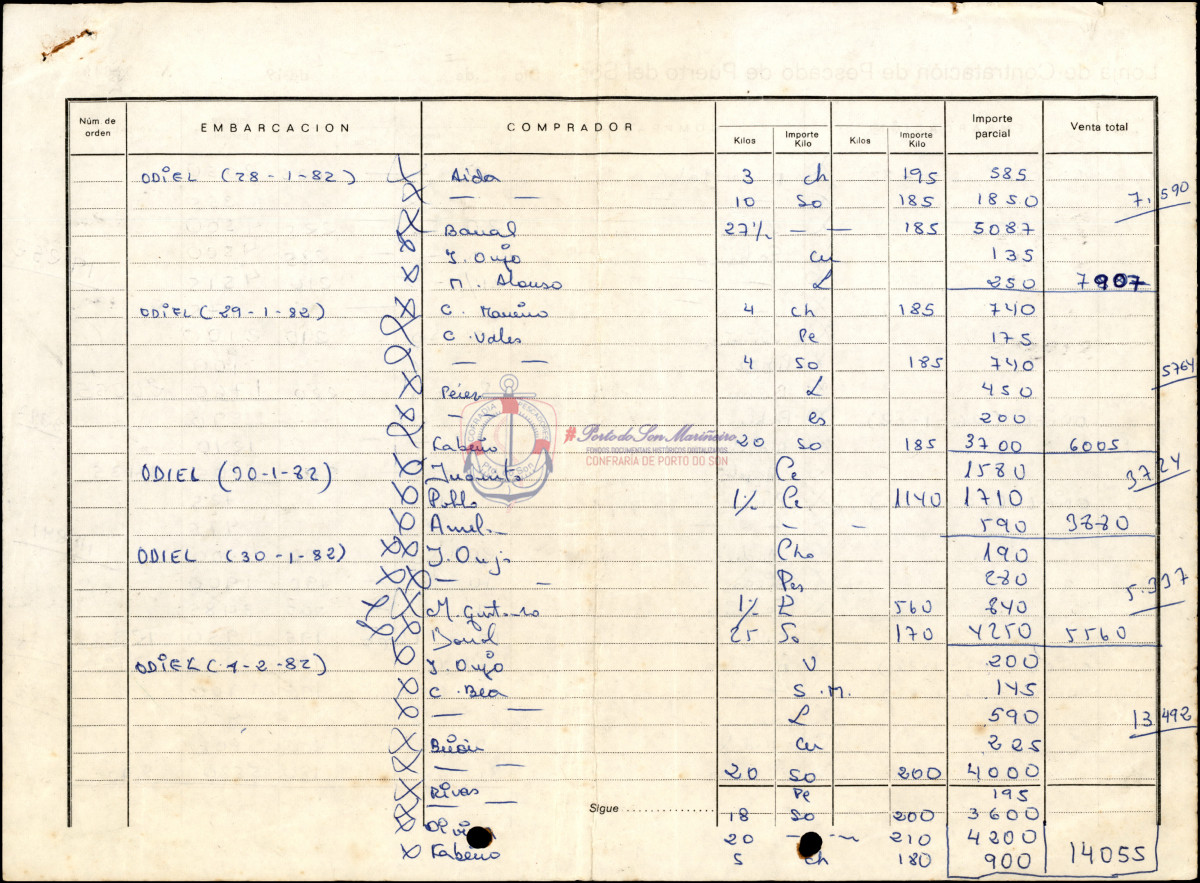 Lonja de Contratación de Pescado de Puerto del Son
Núm. de orden EMBARCACION COMPRADOR Kilos Importe Kilo Kilos Importe Kilo Importe parcial Venta total
ODIEL (28-1-82) Aida 3 ch 195 585
— — 10 So 185 1850 7,590
Banal 27½ — — 185 5087
J. Oujo cu 135
M. Alonso L 250 7907
ODIEL (29-1-82) C. Maneiro 4 ch 185 740
C. Vales Pe 175
— — 4 So 185 740 5764
L 450
— es 200
20 So 185 3700 6005
# Porto do Son Mariñeiro
FONDOS DOCUMENTAIS HISTÓRICOS DIGITALIZADOS
CONFRARÍA DE PORTO DO SON
ODIEL (30-1-82) Juanito Ce 1580 3724
Pobla 1½ Ce 1140 1710
— — 590 3880
ODIEL (30-1-82) J. Oujo Cho 190
— — Pes 280 5.337
1½ L 560 840
Banal 25 So 170 4250 5560
ODIEL (1-2-82) J. Oujo V 200
C. Bea S.M. 145
— — L 590 13,492
cu 225
— — 20 So 200 4000
Rivas Pe 195
Sigue
— 18 So 200 3600
20 — — 210 4200
5 ch 180 900 14055